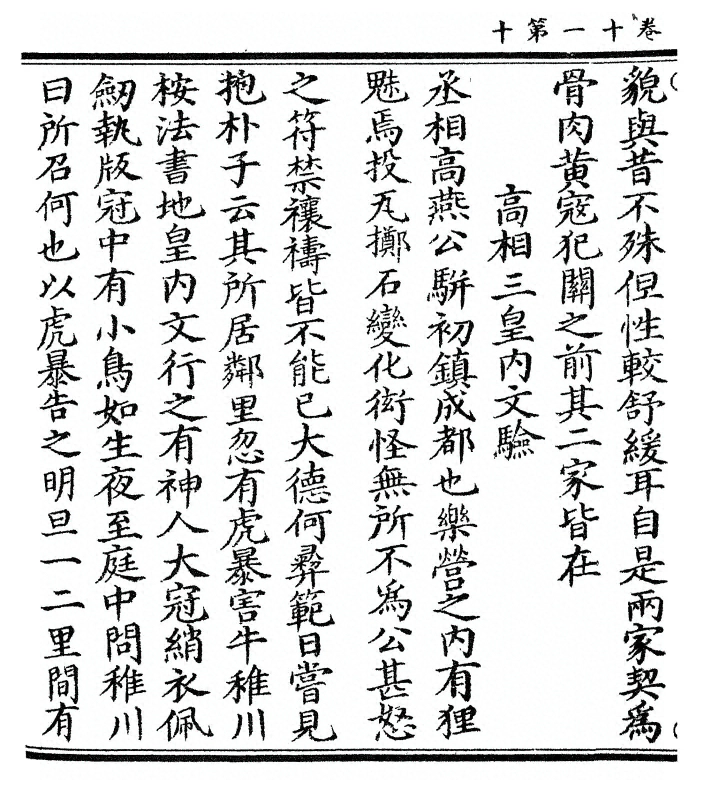 卷十一第十
貌與昔不殊但性較舒緩耳自是兩家契爲
骨肉黄寇犯闕之前其二家皆在
高相三皇内文驗
丞相高燕公駢初鎮成都也樂營之内有狸
魅焉投瓦擲石變化衒怪無所不爲公甚怒
之符禁禳禱皆不能已大德何彛範日嘗見
抱朴子云其所居鄰里忽有虎暴害牛稚川
桉法書地皇内文行之有神人大冠綃衣佩
劒執版冠中有小鳥如生夜至庭中問稚川
曰所召何也以虎暴告之明旦一二里間有